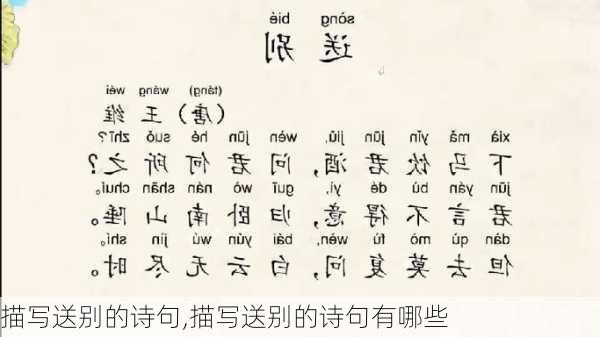 sòng bié
送 别
(táng) wáng wéi
（唐）王 维
xià mǎ yǐn jūn jiǔ, wèn jūn hé suǒ zhī?
下 马 饮 君 酒，问 君 何 所 之？
jūn yán bù dé yì, guī wò nán shān chuí。
君 言 不 得 意，归 卧 南 山 陲。
dàn qù mò fù wèn, bái yún wú jìn shí。
但 去 莫 复 问，白 云 无 尽 时。
描写送别的诗句,描写送别的诗句有哪些